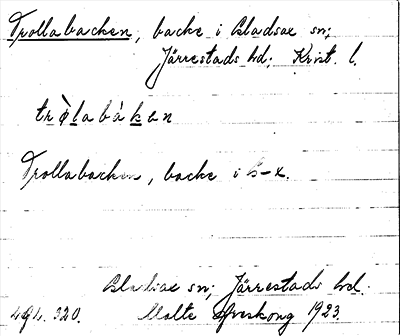 Trollabacken, backe i Gladsax sn;
Järrestads hd. Krist. l.
trò̀labákan
Trollabacken, backe i G-x.
Gladsax sn; Järrestads hd.
Malte 1923.